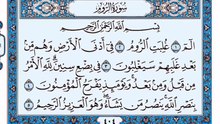 سُورَةُ الرُّومِ
بِسْمِ اللَّهِ الرَّحْمَٰنِ الرَّحِيمِ
الٓمٓ ١ غُلِبَتِ الرُّومُ ٢ فِي أَدْنَى الْأَرْضِ وَهُم مِّنۢ
بَعْدِ غَلَبِهِمْ سَيَغْلِبُونَ ٣ فِي بِضْعِ سِنِينَ لِلَّهِ الْأَمْرُ
مِن قَبْلُ وَمِنۢ بَعْدُ وَيَوْمَئِذٍ يَفْرَحُ الْمُؤْمِنُونَ ٤
بِنَصْرِ اللَّهِ يَنصُرُ مَن يَشَآءُ وَهُوَ الْعَزِيزُ الرَّحِيمُ ٥